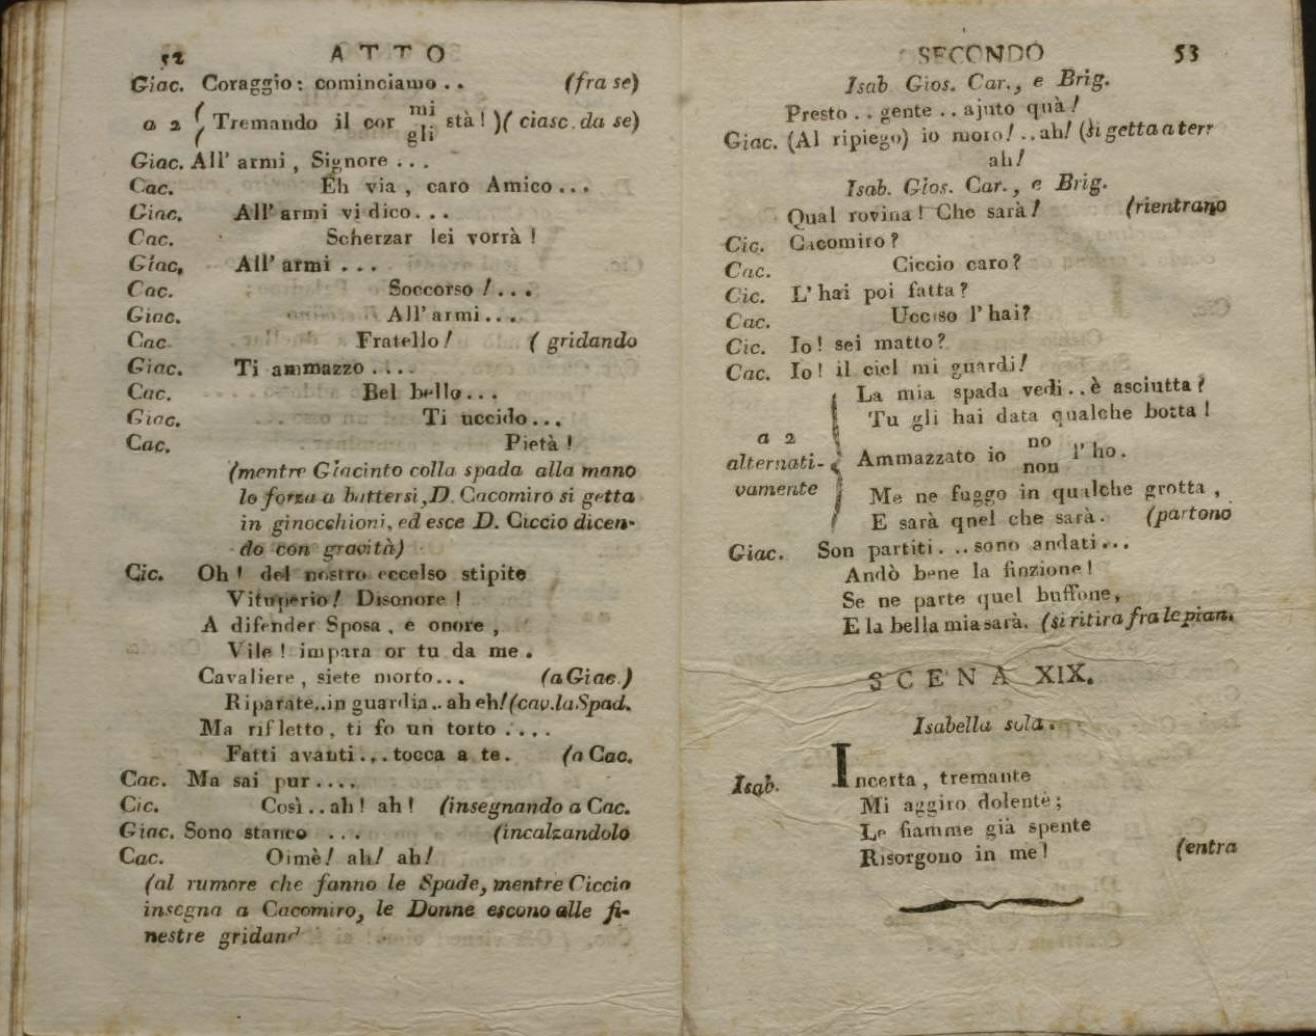 52 ATTO
Giac. Coraggio: cominciamo .. (fra se)
a 2 ( Tremando il cor mi gli stà! ) ( ciasc. da se)
Giac. All' armi, Signore ...
Cac. Eh via, caro Amico ...
Giac. All' armi vi dico ...
Cac. Scherzar lei vorrà!
Giac. All' armi ...
Cac. Soccorso! ...
Giac. All' armi ...
Cac. Fratello! ( gridando
Giac. Ti ammazzo ....
Cac. Bel bello ...
Giac. Ti uccido ...
Cac. Pietà!
(mentre Giacinto colla spada alla mano
lo forza a battersi, D. Cacomiro si getta
in ginocchioni, ed esce D. Ciccio dicen-
do con gravità)
Cic. Oh! del nostro eccelso stipite
Vituperio! Disonore!
A difender Sposa, e onore,
Vile! impara or tu da me.
Cavaliere, siete morto ... (a Giac.)
Riparate .. in guardia .. ah eh! (cav. la Spad.
Ma rifletto, ti fo un torto ....
Fatti avanti ... tocca a te. (a Cac.
Cac. Ma sai pur ....
Cic. Così .. ah! ah! (insegnando a Cac.
Giac. Sono stanco ... (incalzandolo
Cac. Oimè! ah! ah!
(al rumore che fanno le Spade, mentre Ciccio
insegna a Cacomiro, le Donne escono alle fi-
nestre gridand
SECONDO 53
Isab. Gios. Car., e Brig.
Presto .. gente .. ajuto quà!
Giac. (Al ripiego) io moro! .. ah! (si getta a terr
ah!
Isab. Gios. Car., e Brig.
Qual rovina! Che sarà! (rientrano
Cic. Cacomiro?
Cac. Ciccio caro?
Cic. L' hai poi fatta?
Cac. Ucciso l' hai?
Cic. Io! sei matto?
Cac. Io! il ciel mi guardi!
La mia spada vedi .. è asciutta?
Tu gli hai data qualche botta!
a 2 alternati-vamente Ammazzato io no non l' ho.
Me ne fuggo in qualche grotta,
E sarà qnel che sarà. (partono
Giac. Son partiti. .. sono andati ...
Andò bene la finzione!
Se ne parte quel buffone,
E la bella mia sarà. (si ritira fra le pian.
SCENA XIX.
Isabella sola.
Isab. Incerta, tremante
Mi aggiro dolente;
Le fiamme già spente
Risorgono in me! (entra